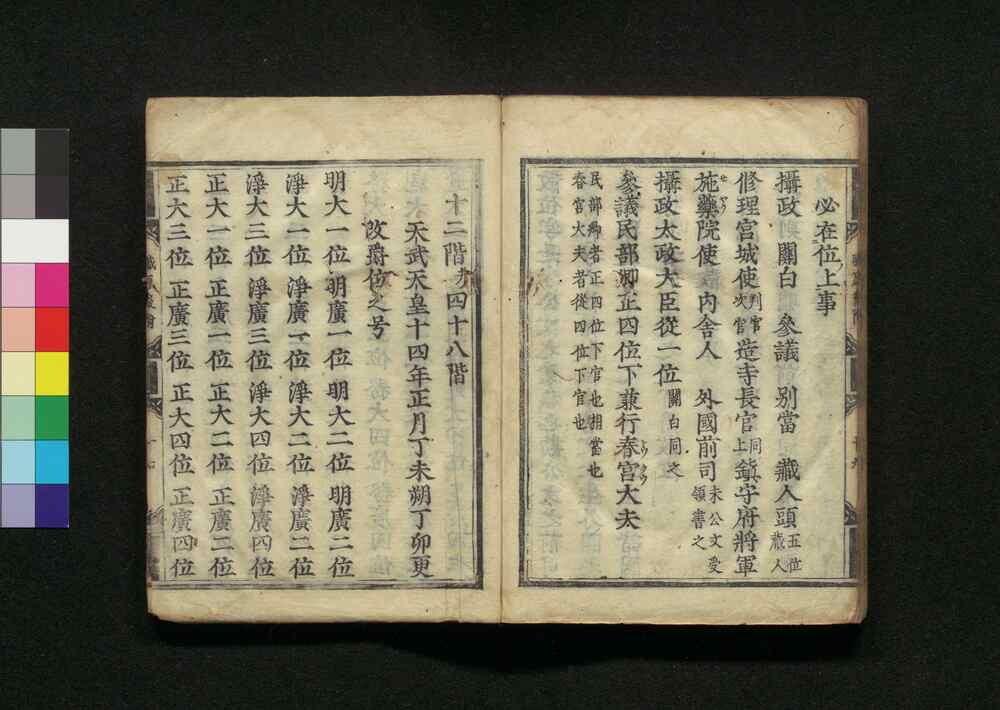 必在位上事
攝政 關白 參議 別當 藏人頭五位藏人
修理宮城使判官次官 造寺長官同上 鎮守府將軍
施藥院使 內舍人 外國前司未公文受領書之
攝政太政大臣從一位關白同之
參議民部卿正四位下兼行春宮大夫
民部卿者正四位下官也相當也
春宮大夫者從四位下官也
十二階 四十八階
天武天皇十四年正月丁未朔丁卯更
改爵位之号
明大一位 明廣一位 明大二位 明廣二位
淨大一位 淨廣一位 淨大二位 淨廣二位
淨大三位 淨廣三位 淨大四位 淨廣四位
正大一位 正廣一位 正大二位 正廣二位
正大三位 正廣三位 正大四位 正廣四位